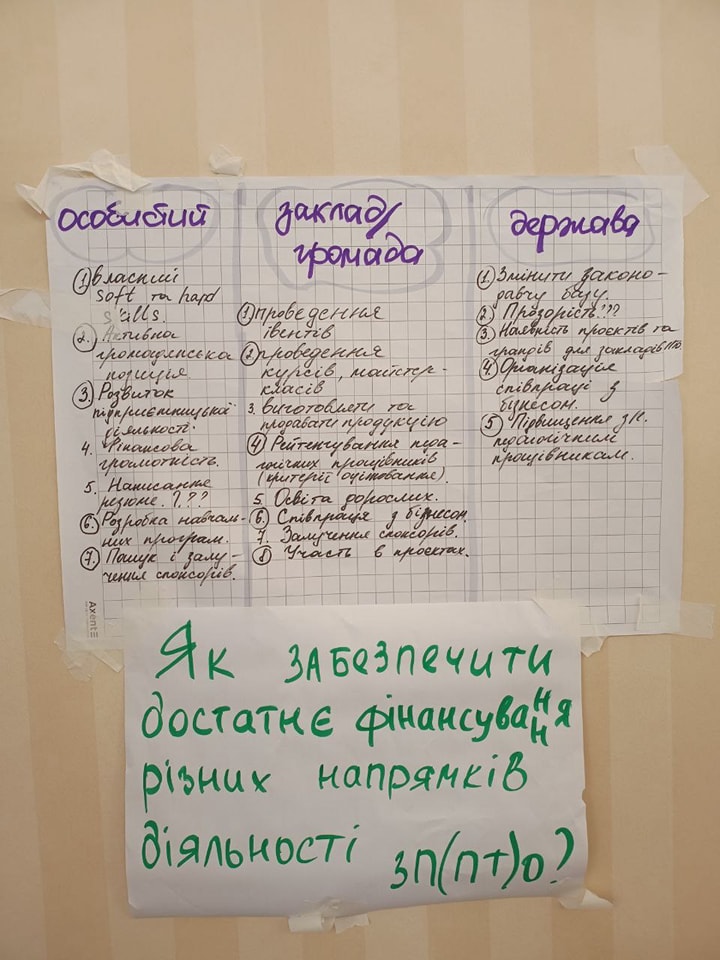 особистий
① власний
soft та hard
skills.
②. Активна
громадянська
позиція
③. Розвиток
підприємницької
діяльності.
4. Фінансова
грамотність.
5. Написання
резюме. ???
⑥. Розробка навчаль-
них програм.
⑦. Пошук і залу-
чення спонсорів.
заклад/
громада
① проведення
івентів
② проведення
курсів, майстер-
класів
3. виготовляти та
продавати продукцію
④ Рейтенгування педа-
гогічних працівників
(критерії оцінювання).
5. Освіта дорослих.
⑥. Співпраця з бізнесом.
7. Залучення спонсорів.
⑧ Участь в проєктах.
держава
①. Змінити законо-
давчу базу.
② Прозорість!??
③. Наявність проєктів та
грандів для закладів
④. Організація
співпраці з
бізнесом.
⑤ Підвищення з/п.
педагогічним
працівникам.
AxentE
Як забезпечити
достатнє фінансування
різних напрямків
діяльності ЗП(ПТ)О?